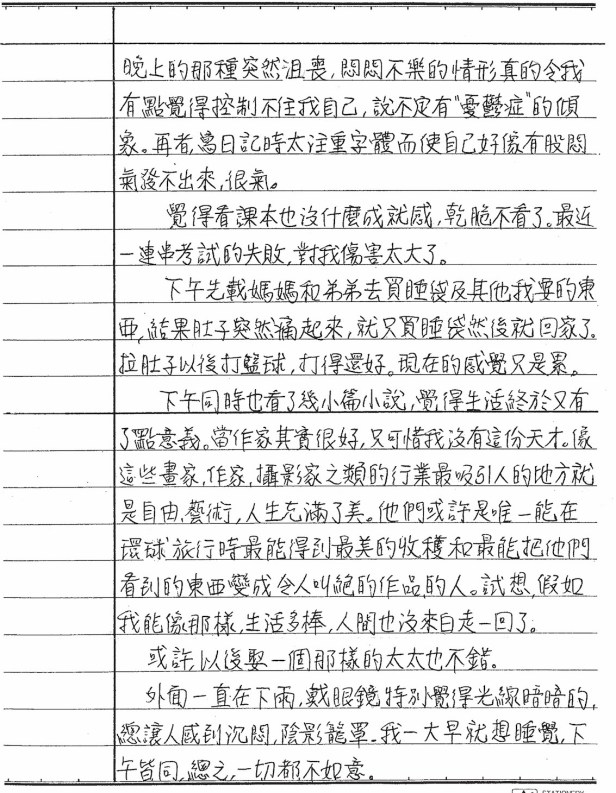 晚上的那種突然沮喪,悶悶不樂的情形真的令我
有點覺得控制不住我自己,說不定有"憂鬱症"的傾
象。再者,寫日記時太注重字體而使自己好像有股悶
氣發不出來,很氣。
覺得看課本也沒什麼成就感,乾脆不看了。最近
一連串考試的失敗,對我傷害太大了。
下午先載媽媽和弟弟去買睡袋及其他我要的東
西,結果肚子突然痛起來,就只買睡袋然後就回家了。
拉肚子以後打籃球,打得還好。現在的感覺只是累。
下午同時也看了幾小篇小說,覺得生活終於又有
了點意義。當作家其實很好,只可惜我沒有這份天才。像
這些畫家,作家,攝影家之類的行業最吸引人的地方就
是自由,藝術,人生充滿了美。他們或許是唯一能在
環球旅行時最能得到最美的收穫和最能把他們
看到的東西變成令人叫絕的作品的人。試想,假如
我能像那樣,生活多棒,人間也沒來白走一回了。
或許,以後娶一個那樣的太太也不錯。
外面一直在下雨,戴眼鏡特別覺得光線暗暗的,
總讓人感到沉悶,陰影籠罩。我一大早就想睡覺,下
午皆同,總之,一切都不如意。
STATIONERY